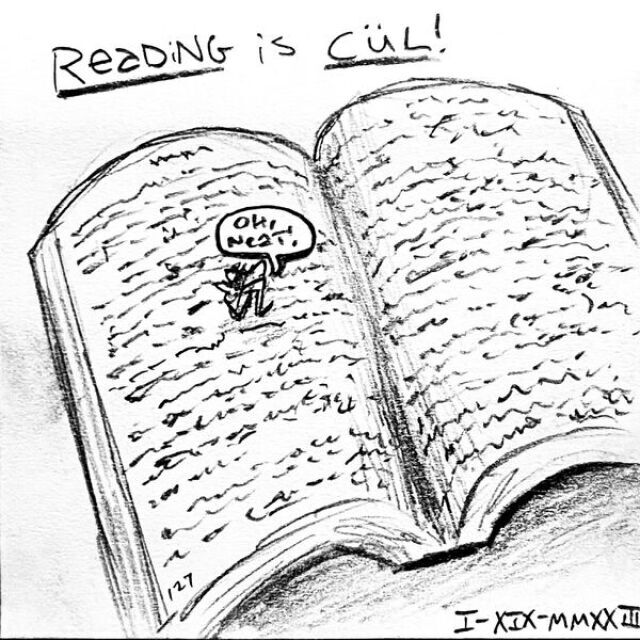 ReaDiNG is CüL!
OH,
NeaT!
127
I-XIX-MMXXIII